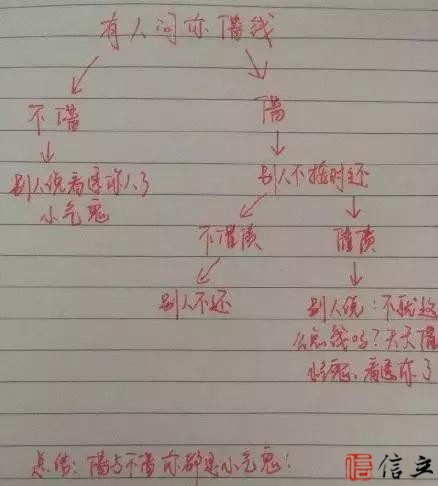 有人问你借钱
不借
借
别人说看透你人了
小气鬼
别人不按时还
不催债
催债
别人不还
别人说：不就这
么点钱吗？天天催
死、看透你了
总结：借与不借你都是小气鬼！
信立